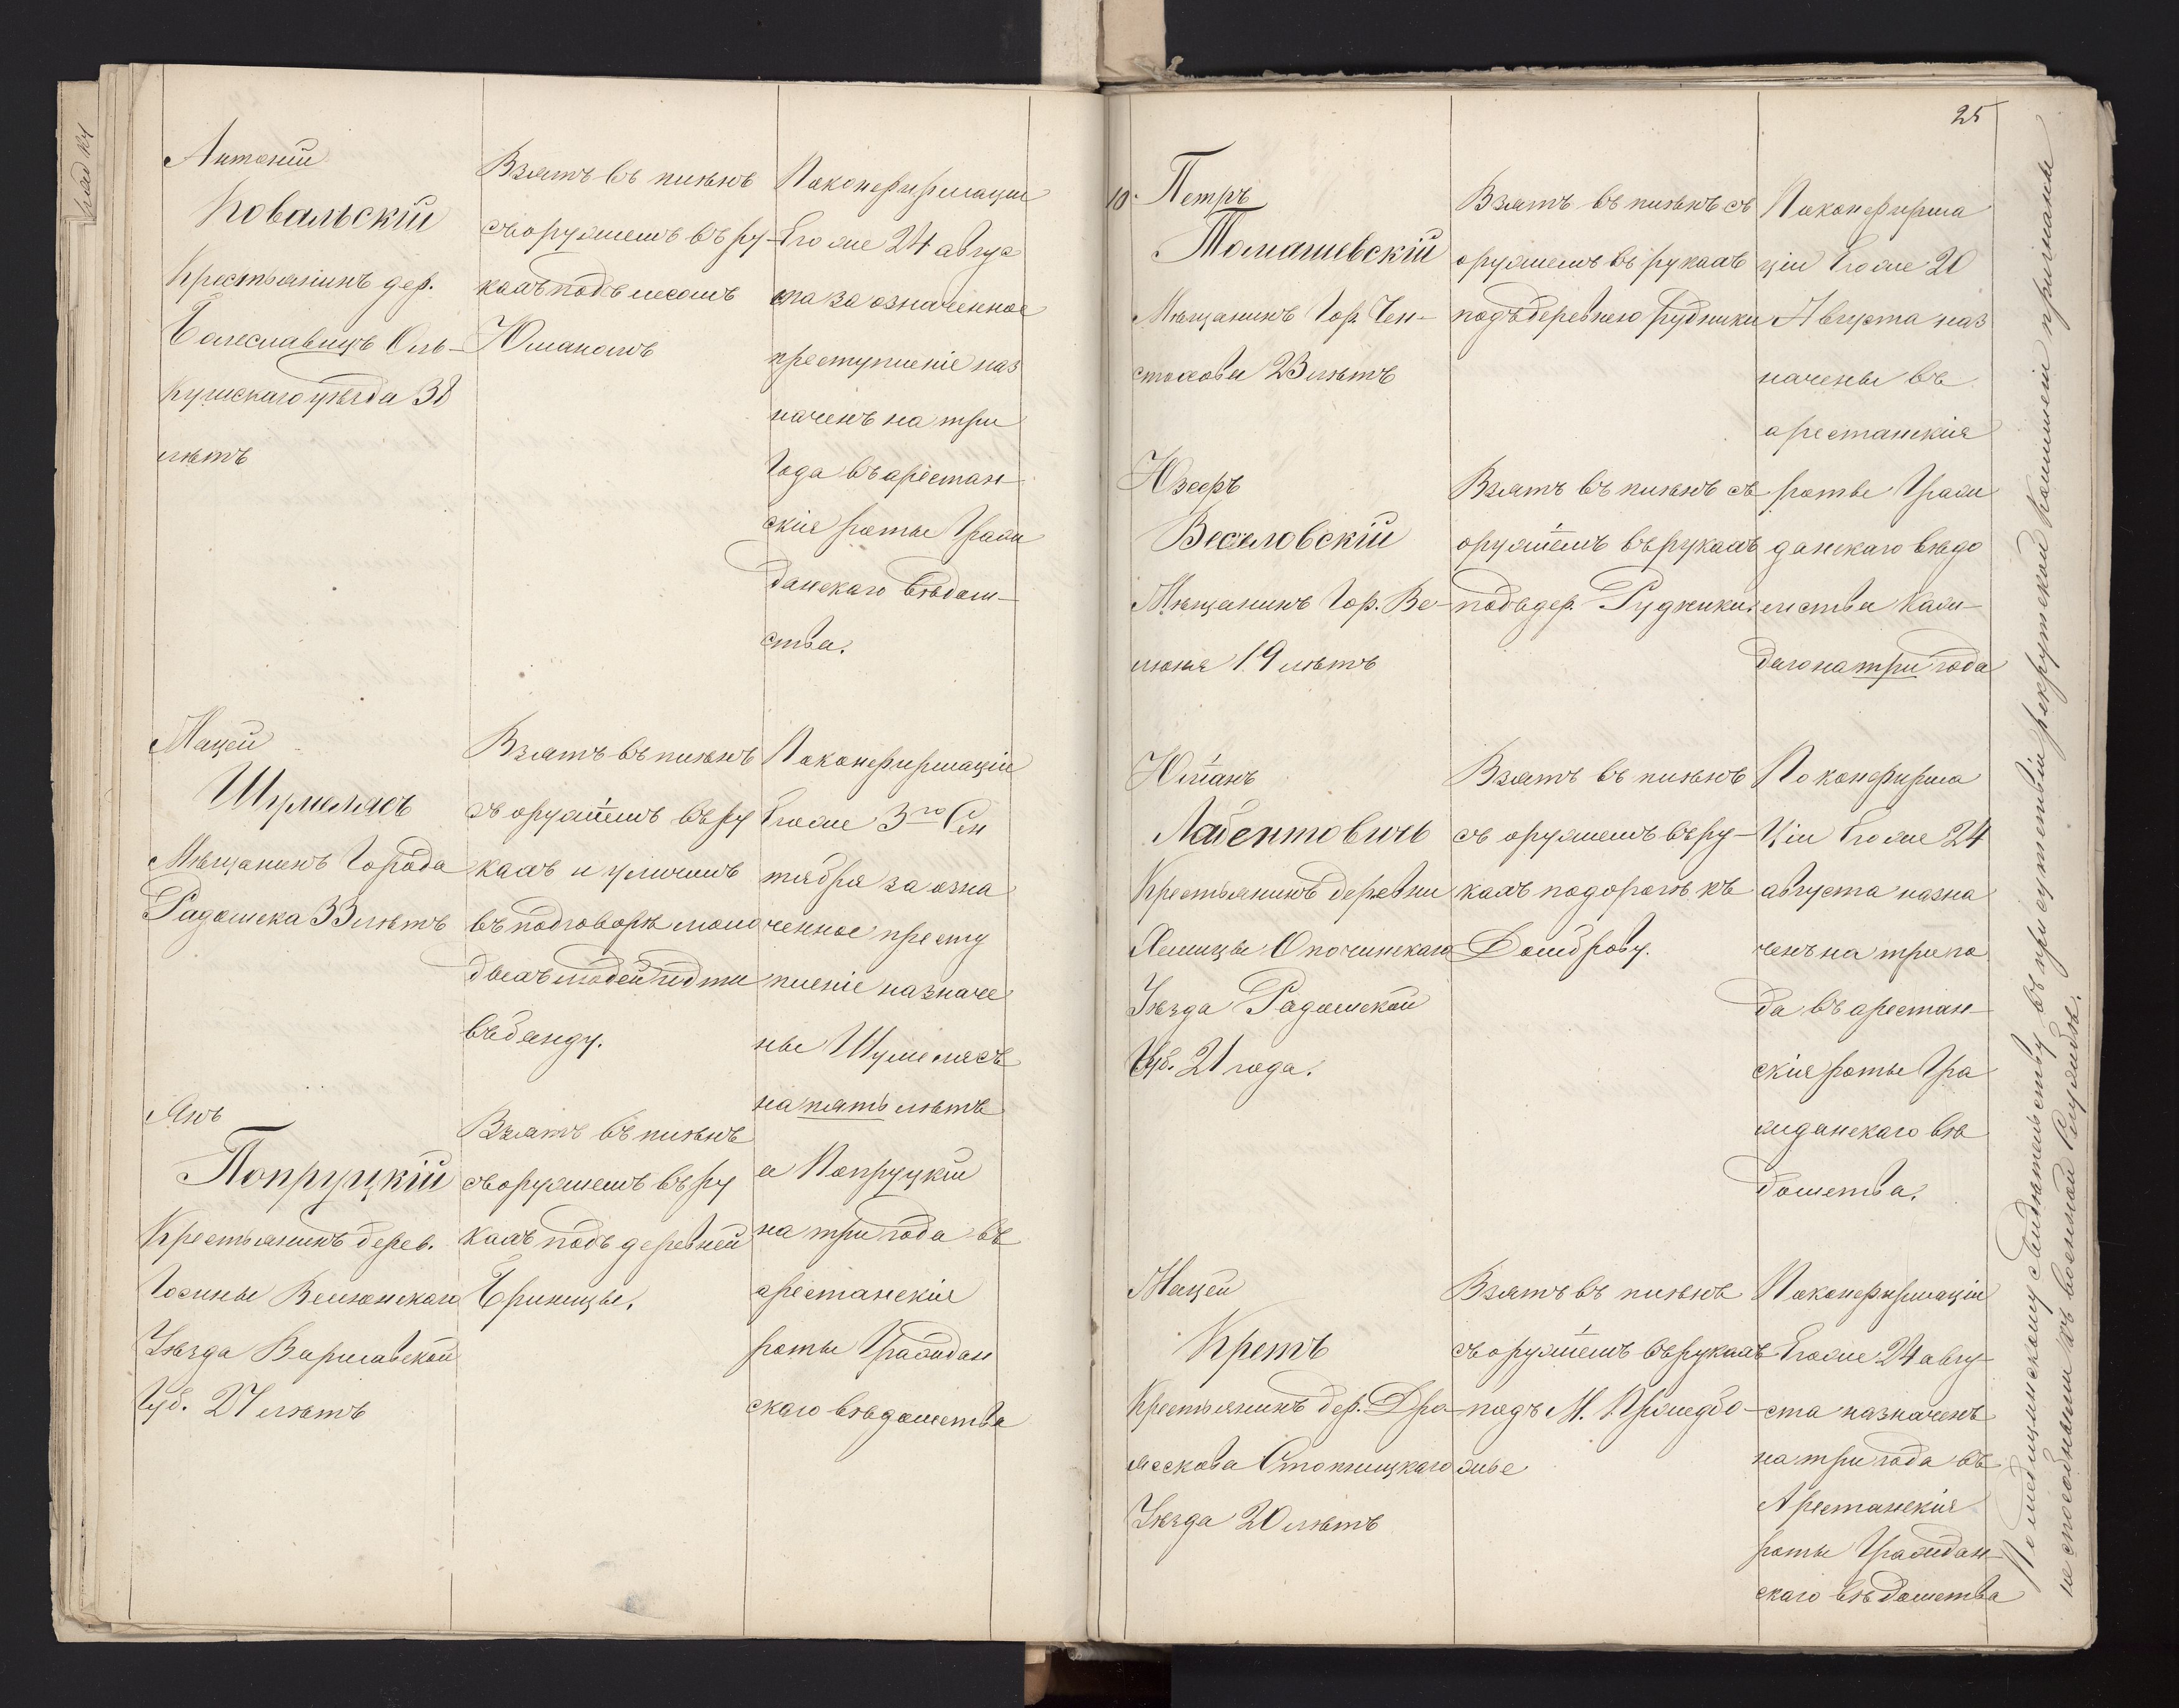 Антоній
Ковальскій
Крестьянинъ дер.
Болеславицъ Оль-
кушскаго уѣзда 38
лѣтъ
Взятъ въ плѣнъ
съоружіемъ въ ру-
кахъ подъ лесомъ
Юліаномъ
По конфирмаціи
Его же 24 авгус
та за означенное
преступленіе наз
наченъ на три
года въ арестан-
скія роты Граж
данскаго вѣдом-
ства.
Мацей
Шумлясъ
Мѣщанинъ Города
Радомска 33 лѣтъ
Взятъ въ плѣнъ
съ оружіемъ въ ру
кахъ и уличенъ
въ подговорѣ моло
дыхъ людей идти
въ банду.
По конфирмаціи
Его же 3го Сен
тября за озна
ченное престу
пленіе назначе
ны Шумлясъ
на пять лѣтъ
Янъ
Попруцкій
Крестьянинъ дерев.
Велюнскаго
Уѣзда Варшавской
Губ. 27 лѣтъ
Взятъ въ плѣнъ
съоружіемъ въ ру
кахъ подъ деревней
а Попруцкій
на три года въ
арестанскія
роты Граждан
скаго вѣдомства
25
10. Петръ
Томашевскій
Мѣщанинъ Гор. Чен-
стохова 23 лѣтъ
Взятъ въ плѣнъ съ
оружіемъ въ рукахъ
подъ деревнею Рудники
По конфирма
ціи Его же 20
Августа наз
начены въ
арестанскія
роты Граж
данскаго вѣдо
мства каж-
даго на три года
Юзефъ
Веселовскій
Мѣщанинъ Гор. Ве-
люня 19 лѣтъ
Взятъ въ плѣнъ съ
оружіемъ въ рукахъ
подъ дер. Рудники.
Юліанъ
Лабентовичъ
Крестьянинъ деревни
Опочинскаго
Уѣзда Радомской
Губ. 21 года.
Взятъ въ плѣнъ
съ оружіемъ въ ру-
кахъ по дорогѣ къ
Домброву.
По конфирма
ціи Его же 24
августа назна
ченъ на три го
да въ арестан-
скія роты Гра
жданскаго вѣ
домства.
Мацей
Кретъ
Крестьянинъ дер.
Стопницкаго
Уѣзда 20 лѣтъ
Взятъ въ плѣнъ
съ оружіемъ въ рукахъ
подъ М. Пржедбо-
жье
По конфирмаціи
Его же 24 авгу-
ста назначенъ
на три года въ
Арестанскія
роты Граждан-
скаго вѣдомства
По медицинскому свидѣтельству въ присутствіи рекрутской коммисіи признаны
не способными къ военной службѣ.